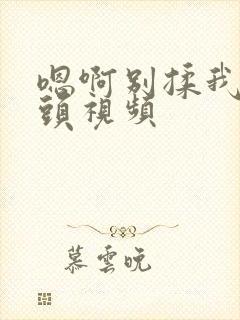 嗯啊别揉我
頭視頻
慕雲晚